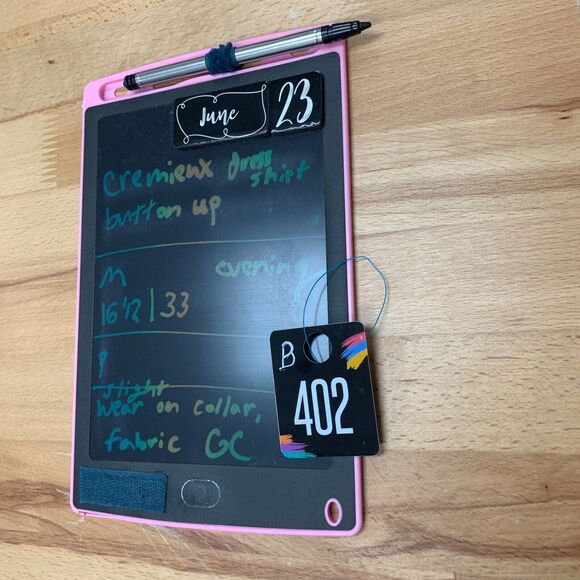 June 23
cremieux dress shirt
button up
M evening
16 1/2 | 33
P
slight
wear on collar,
fabric GC
B
402